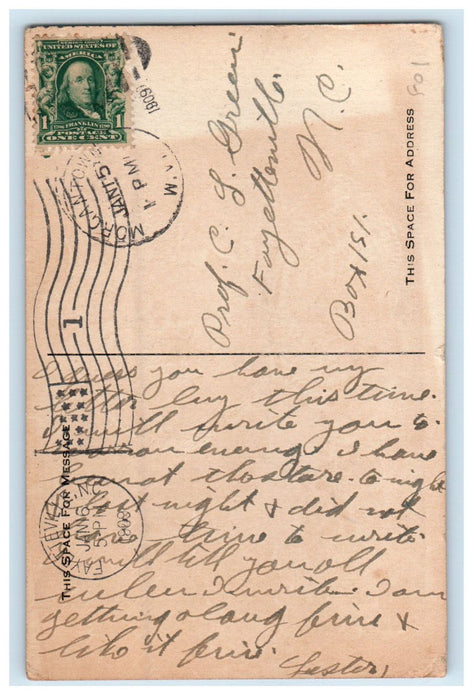 UNITED STATES OF
AMERICA
1 1
1706 FRANKLIN 1790
POSTAGE
ONE CENT
1909
MORGANTOWN
JAN 5
1 PM
W.
1
801
THIS SPACE FOR ADDRESS
Prof. C. L. Green
Fayetteville
N. C.
Box 151.
THIS SPACE FOR MESSAGE
FAYETTEVILLE, N.C.
JAN 6
5 PM
1909
I guess you have my
letter by this time.
I will write you
I have
to night
last night & did not
have time to write.
will tell you all
when I write. I am
getting along fine &
like it fine.
Lester,